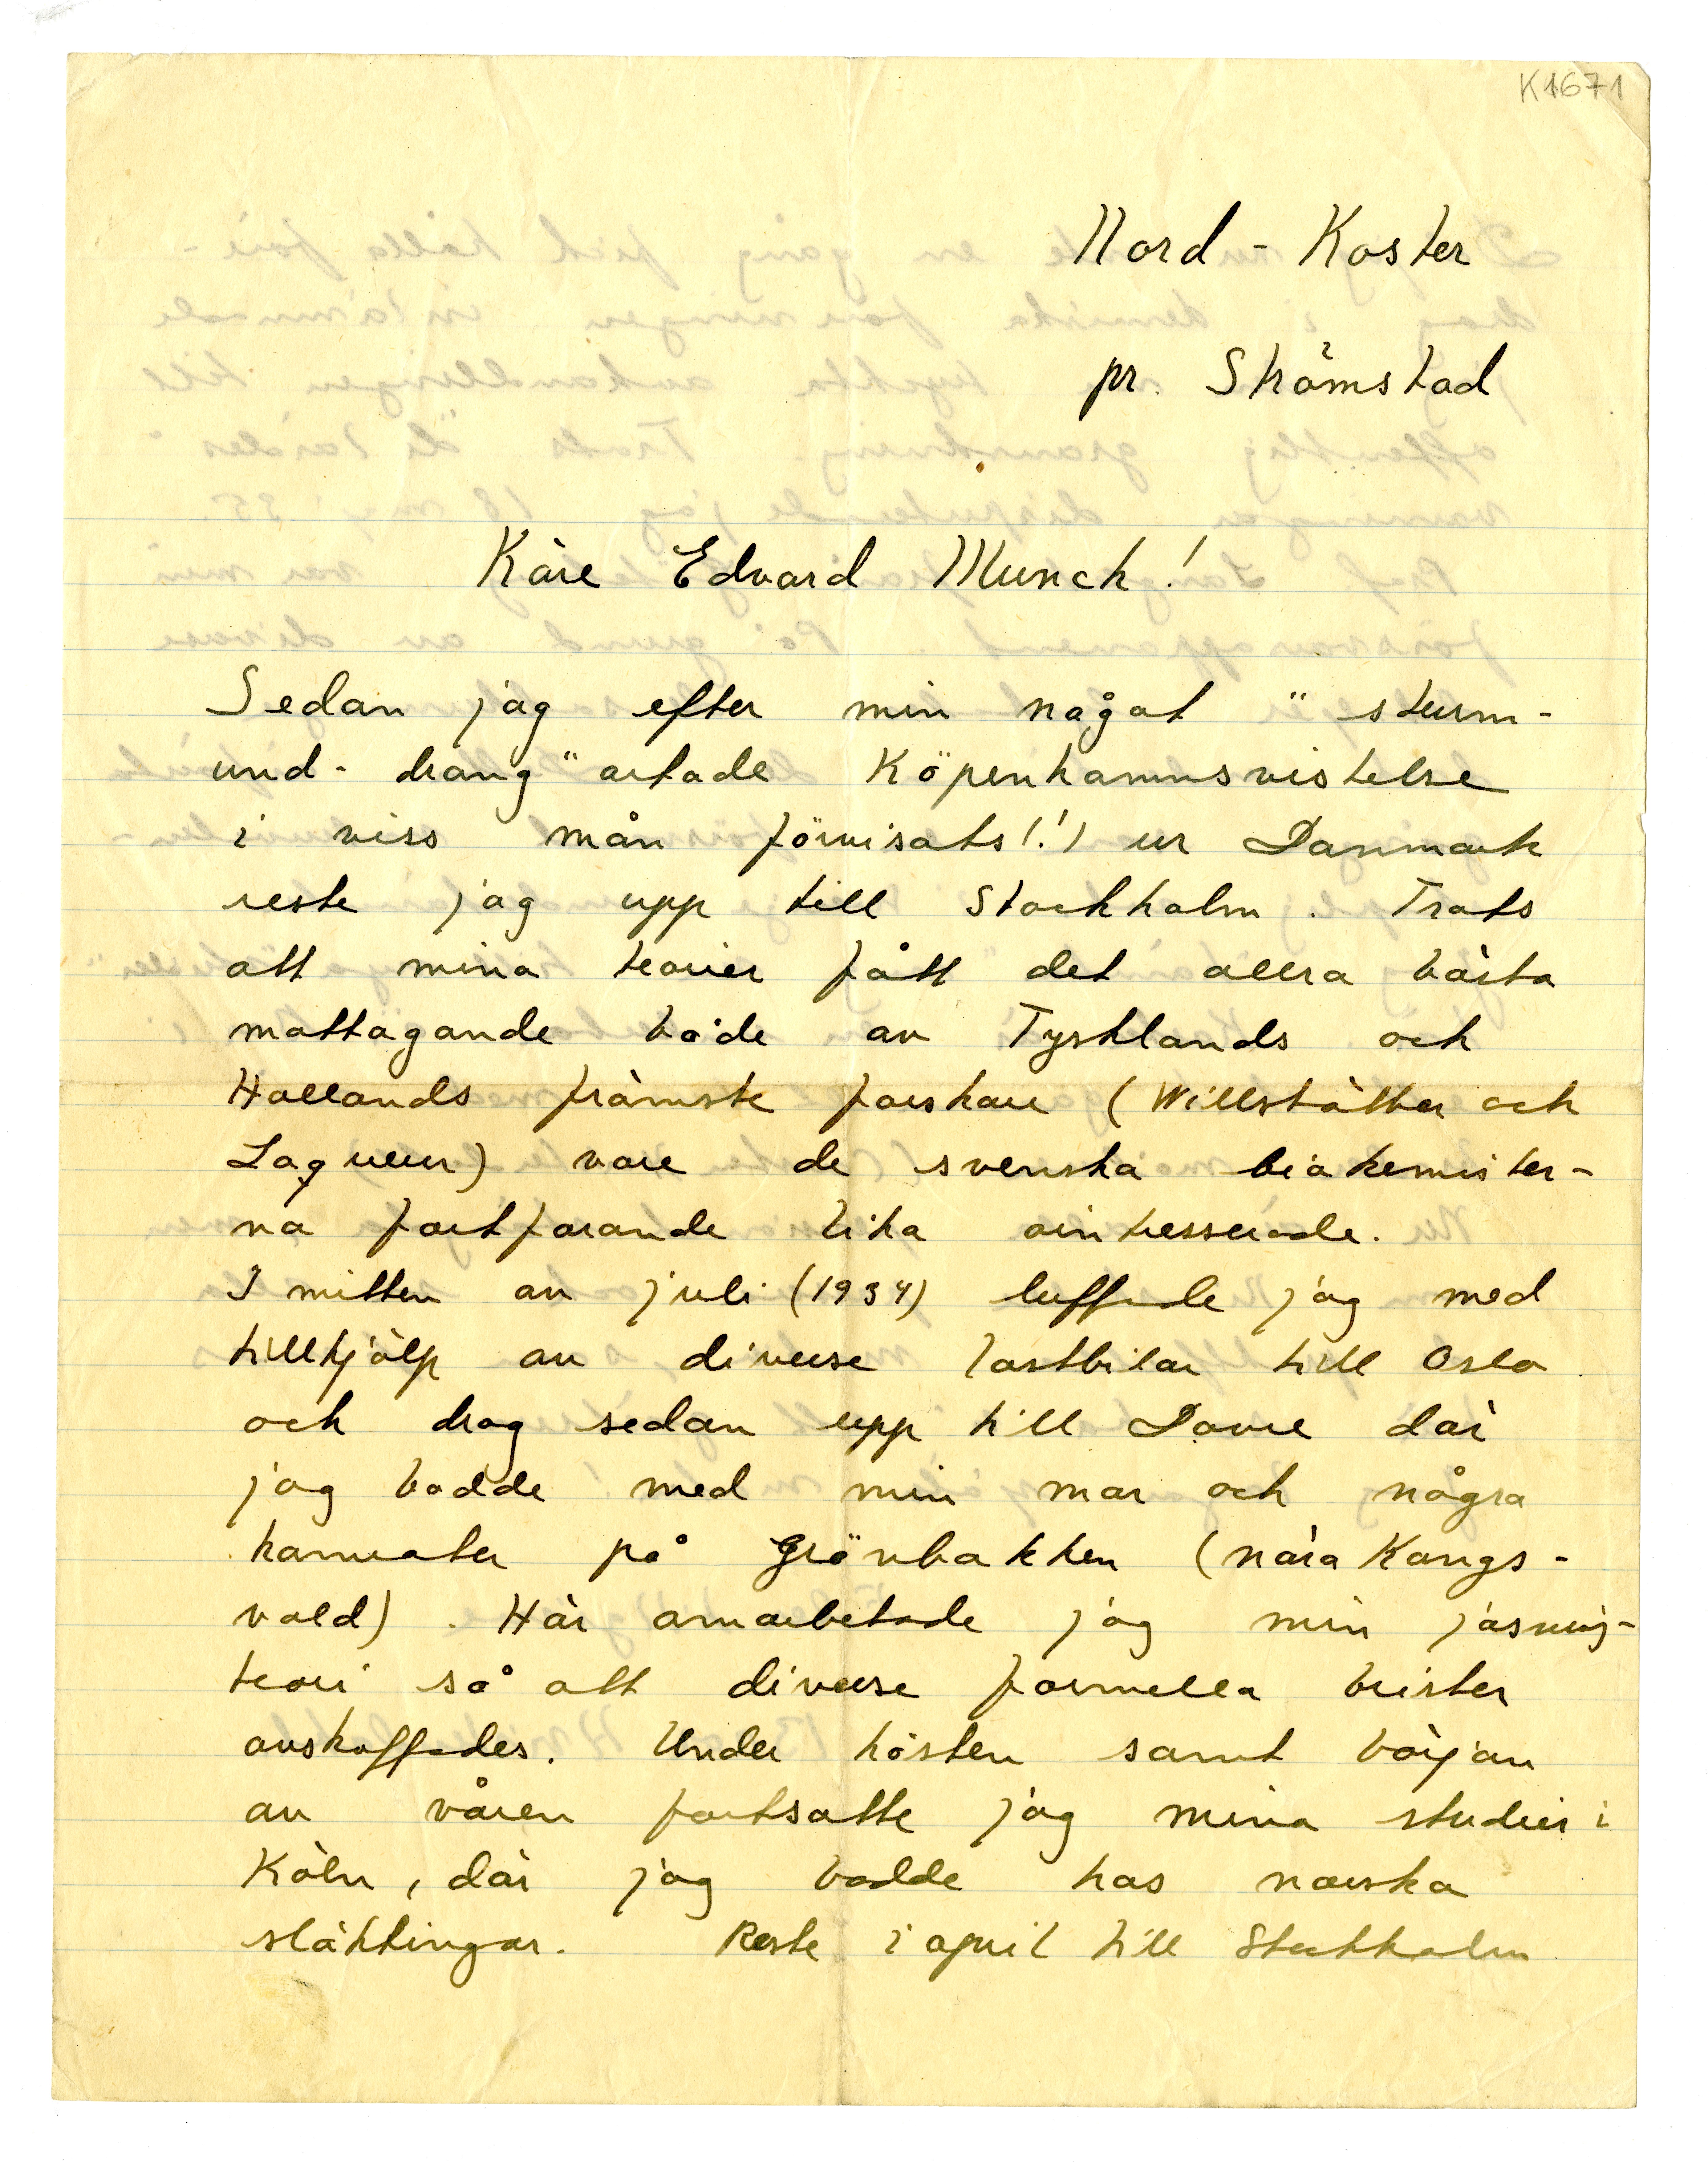 K1671
Nord - Koster
pr. Strömstad
Käre Edvard Munch!
Sedan jag efter min något "sturm-
und-drang" artade Köpenhamnsvistelse
i viss mån förvisats(!) ur Danmark
reste jag upp till Stockholm. Trots
att mina teorier fått det allra bästa
mottagande både av Tysklands och
Hollands främste forskare (Willstätter och
Laqueur) vore de svenska biokemister-
na fortfarande lika ointresserade.
I mitten av juli (1934) luffade jag med
tillhjälp av diverse lastbilar till Oslo
och drog sedan upp till Dovre där
jag bodde med min mor och några
kamrater på Grönbakken (nära Kongs-
vold). Här omarbetade jag min jäsnings-
teori så att diverse formella brister
avskaffades. Under hösten samt början
av våren fortsatte jag mina studier i
Köln, där jag bodde hos norska
släktingar. Reste i april till Stockholm